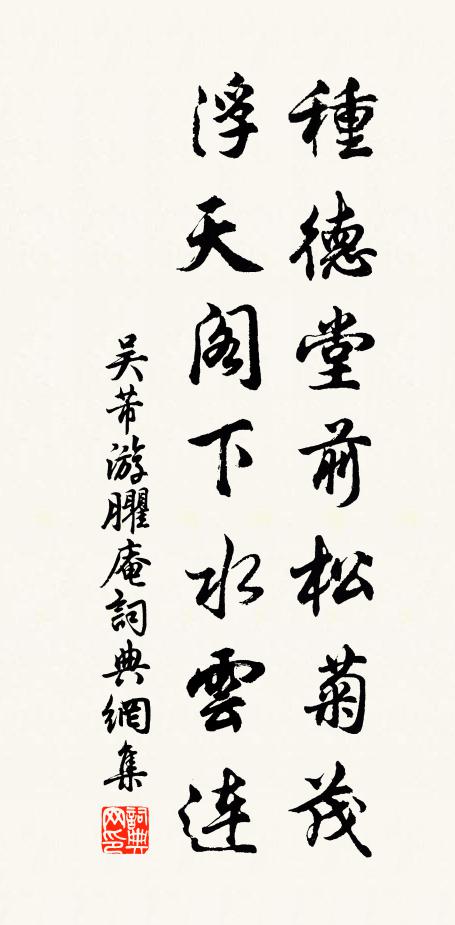 種德堂前松菊茂
浮天阁下水雲連
吴芾游臞庵詞典網集
詞典网印